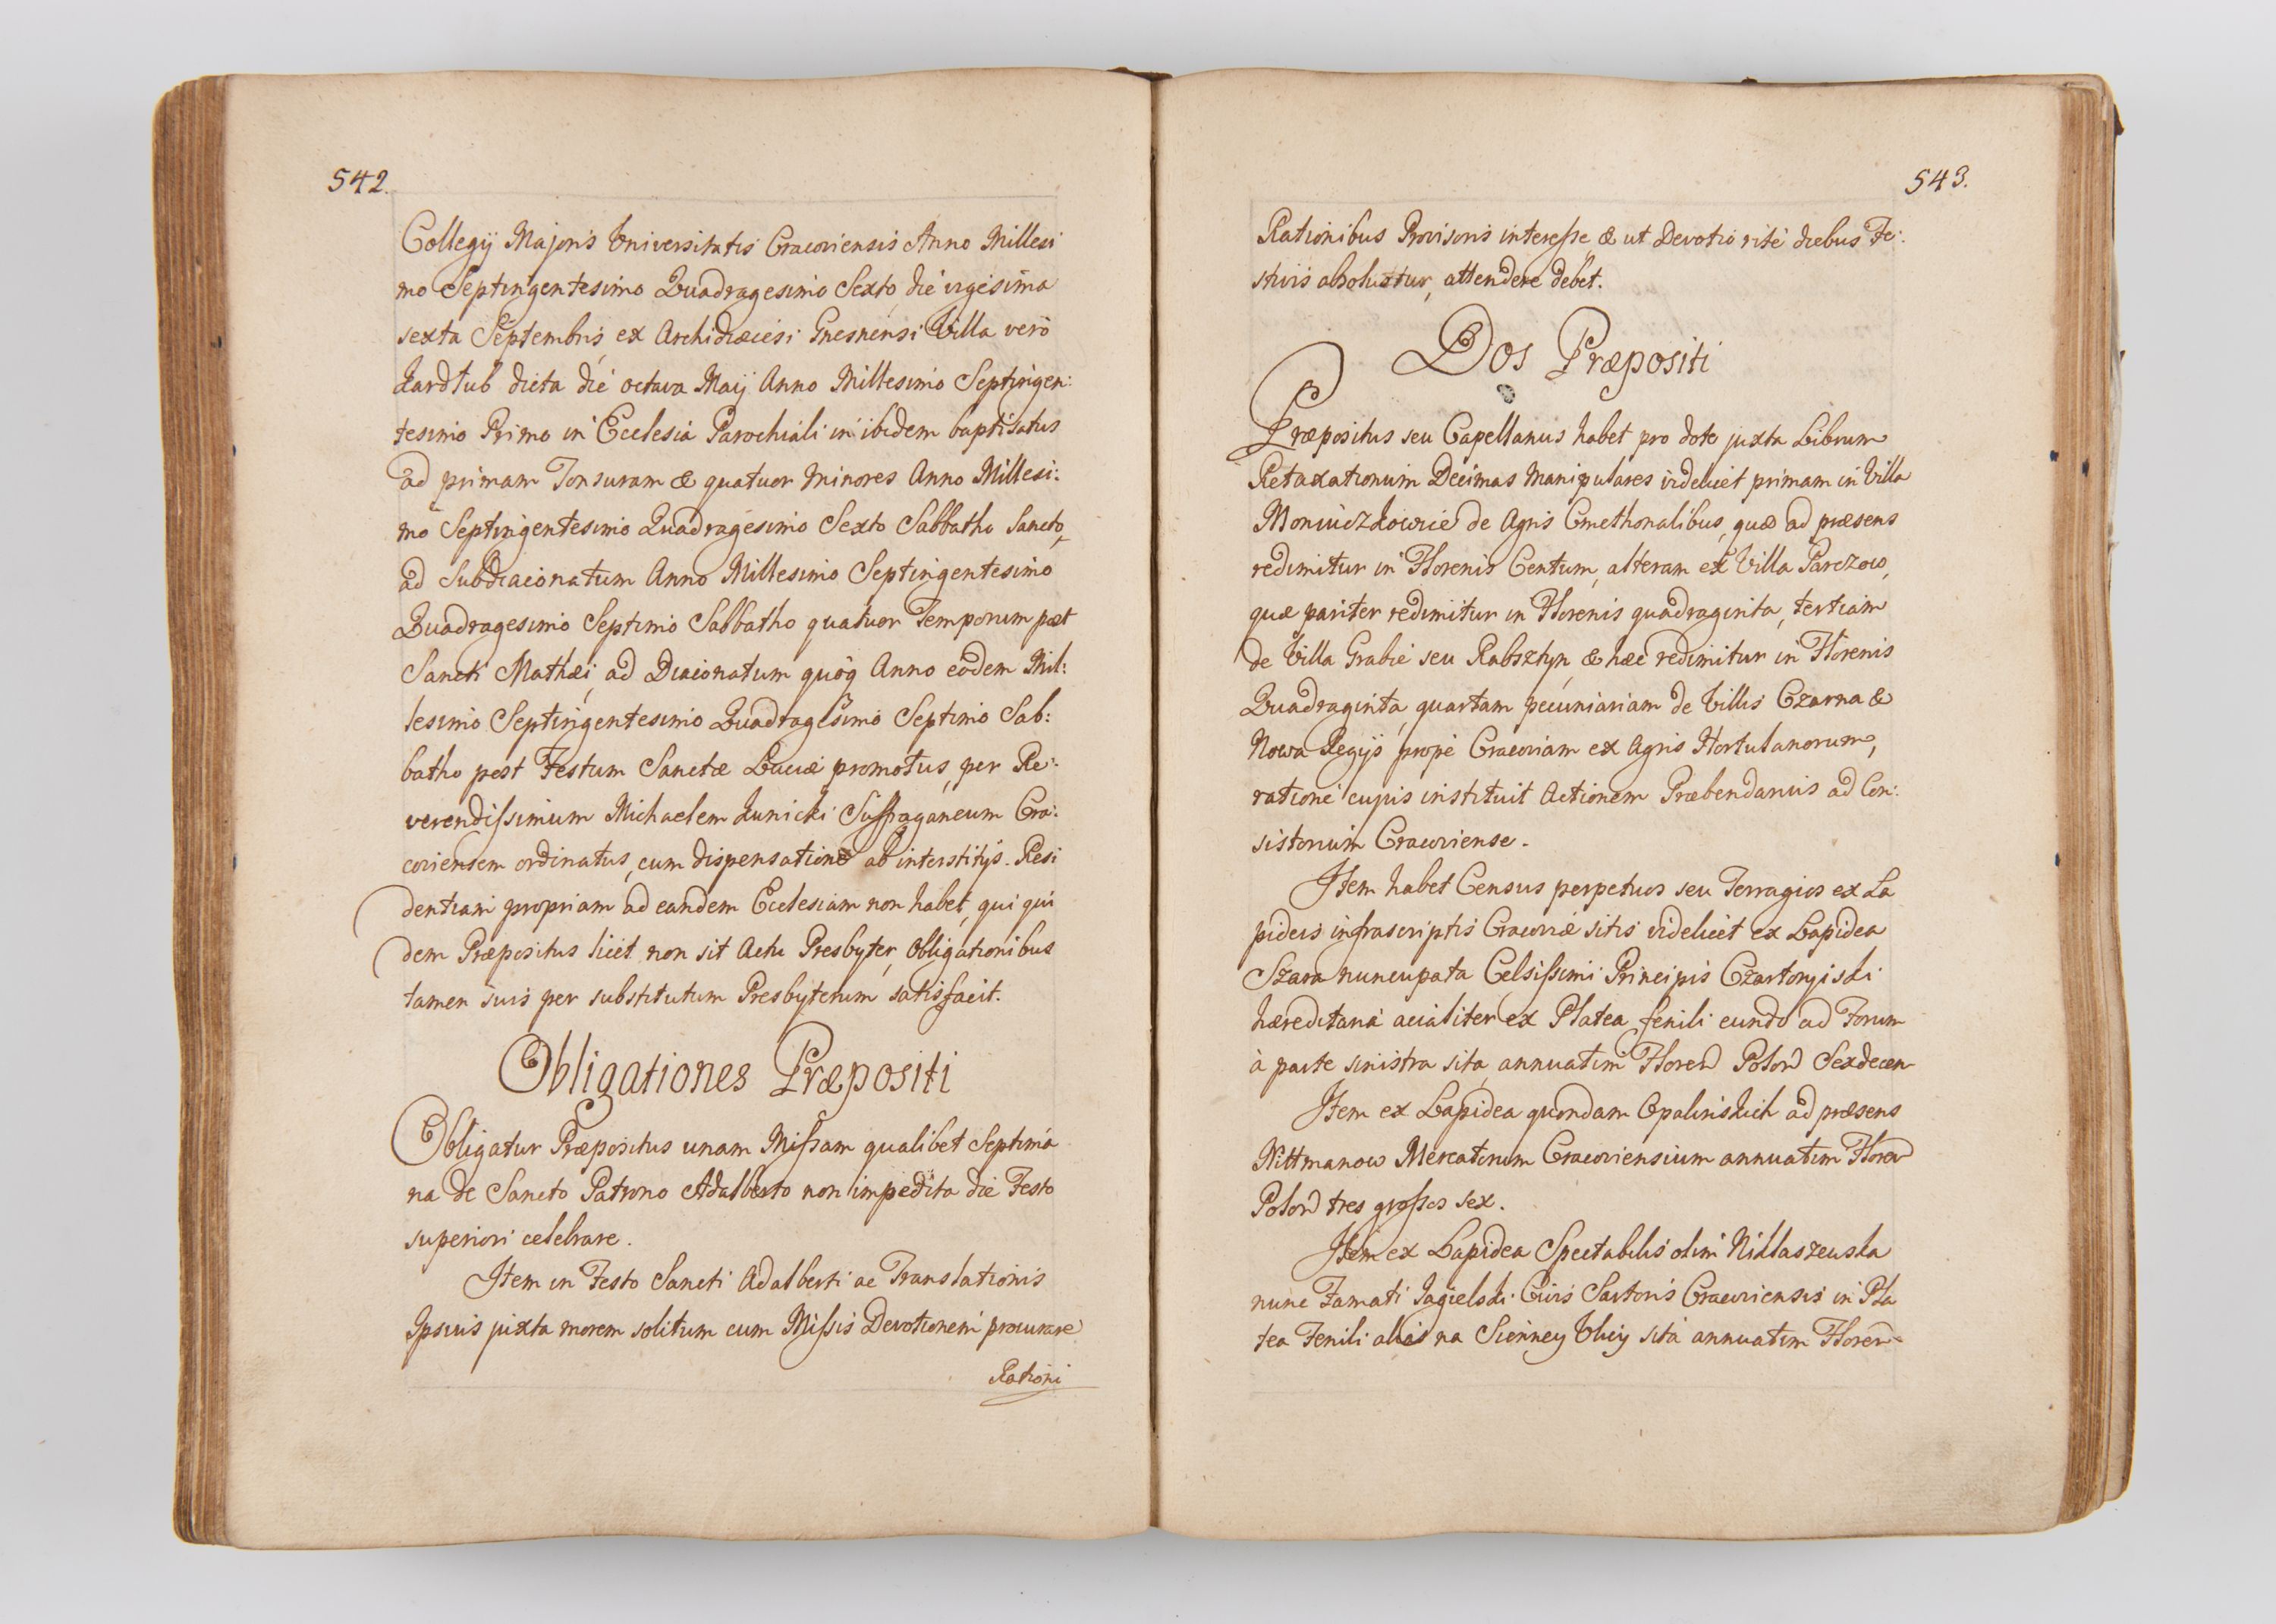 542.
Collegÿ Majoris Universitatis Cracoviensis Anno Millesi
mo Septingentesimo Quadragesimo Sexto die vigesima
sexta Septembris, ex Archidiæcesi Gnesnensi Villa verò
dicta die octava Maÿ Anno Millesimo Septingen:
tesimo Primo in Ecclesia Parochiali in ibidem baptisatus
ad primam Tonsuram & quatuor Minores Anno Millesi:
mo Septingentesimo Quadragesimo Sexto Sabbatho Sancto,
ad Subdiaconatum Anno Millesimo Septingentesimo
Quadragesimo Septimo Sabbatho quatuor Temporum post
Sancti Mathæi, ad Diaconatum quoq Anno eodem Mil:
lesimo Septingentesimo Quadragesimo Septimo Sab:
batho post Festum Sanctæ Luciæ promotus, per Re:
verendissimum Michaelem Kunicki Suffraganeum Cra:
coviensem ordinatus, cum dispensatione ab interstitÿs. Resi
dentiam propriam ad eandem Ecclesiam non habet, qui qui
dem Præpositus licet non sit Actu Presbyter, Obligationibus
tamen suis per substitutum Presbyterum satisfacit.
Obligationes Præpositi
Obligatur Præpositus unam Missam qualibet Septima
na de Sancto Patrono Adalberto non impedita die Festo
superiori celebrare.
Item in Festo Sancti Adalberti ac Translationis
Ipsius juxta morem solitum cum Missis Devotionem procurare
Rationi
543.
Rationibus Provisoris interesse, & ut Devotio ritè diebus Fe:
stivis absolvatur, attendere debet.
Dos Præpositi
Præpositus seu Capellanus habet pro dote juxta Librum
Retaxationum Decimas Manipulares videlicet primam in Villa
de Agris Cmethonalibus, quæ ad præsens
redimitur in Florenis Centum, alteram ex Villa Parczow,
quæ pariter redimitur in Florenis quadraginta, tertiam
de Villa Grabie seu Rabsztyn, & hæc redimitur in Florenis
Quadraginta, quartam pecuniariam de Villis Czarna &
Nowa Regÿs prope Cracoviam ex Agris Hortulanorum,
ratione cujus instituit Actionem Præbendarius ad Con:
sistorium Cracoviense.
Item habet Census perpetuos seu Terragios ex La
pideis infrascriptis Cracoviæ sitis videlicet ex Lapidea
Szara nuncupata Celsissimi Principis Czartoryiski
hæreditaria acialiter ex Platea fenili eundo ad Forum
à parte sinistra sita, annuatim Floren Polon Sexdecem
Item ex Lapidea quondam Opalinskich ad præsens
Mercatorum Cracoviensium annuatim Floren
Polon tres grossos sex.
Item ex Lapidea Spectabilis olim Niklaszewska
nunc Famati Jagielski Civis Sartoris Cracoviensis in Pla
tea Fenili alias na Sienney Ulicy sita annuatim Floren